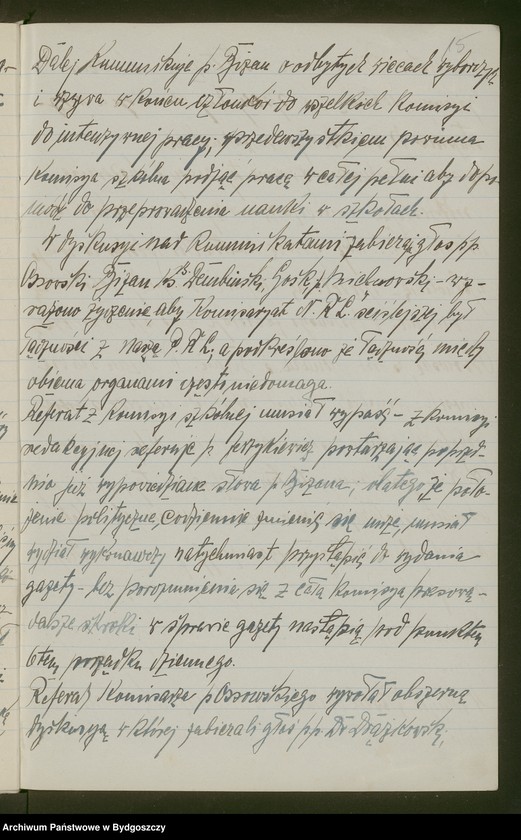 5
Dalej Kumunikuje p. Bizan o odbytych wiecach wyborczych
i wzywa w końcu członków do wszelkich Komisyi
do intenzywnej pracy, przedewszystkiem powinna
Komisya szkolna podjąć pracę w całej pełni aby dopo-
módz do przeprowadzenia nauki w szkołach.
W dyskusyi nad Kumunikatami zabierają głos pp
Ossowski, Bizan, ks. Dembiński, – wy-
rażono życzenie, aby Komisaryat N. R. L. ściślejszej był
łączności z naszą P. R. L., a podkreślono że łączność między
obiema organami często niedomaga.
Referat z Komisyi szkolnej musiał wypaść – z komisyi
redakcyjnej referuje p. powtarzając poprzed-
nio już wypowiedziane słowa p. Bizana, dlatego że poło-
żenie polityczne codziennie zmienić się może, musiał
wydział wykonawczy natychmiast przystąpić do wydania
gazety – bez porozumienia się z całą Komisyą prasową –
dalsze kroki w sprawie gazety nastąpią pod punktem
6tem porządku dziennego.
Referat Komisarza p. Ossowskiego wywołał obszerną
dyskusyą w której zabierali głos pp. Dr
Archiwum Państwowe w Bydgoszczy